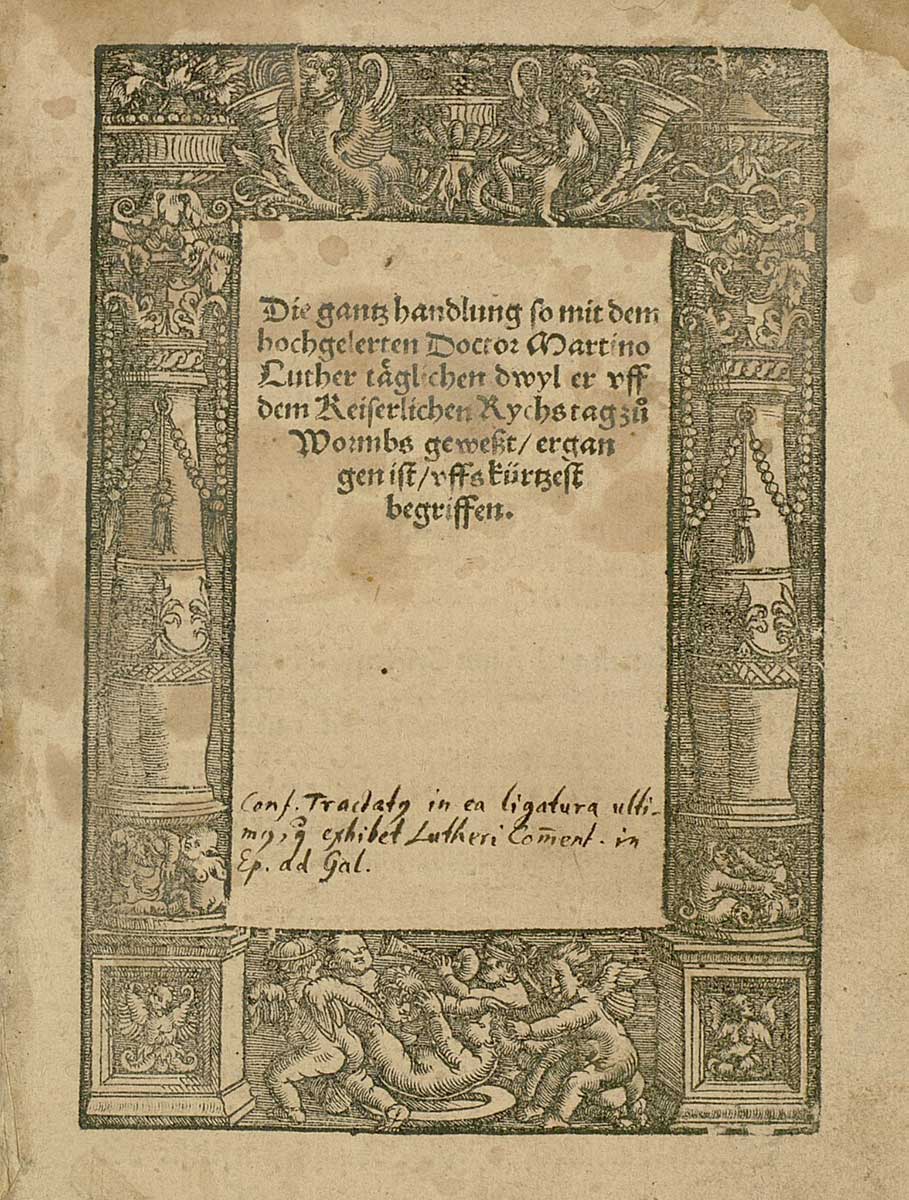 Die gantz handlung so mit dem
hochgelerten Doctor Martino
Luther täglichen dwyl er vff
dem Keiserlichen Rychstag zů
Wormbs geweßt / ergan
gen ist / vffs kürtzest
begriffen.
Conf. Tractatꝯ in ea ligatura ulti-
mꝯ, q̃ exhibet Lutheri Com̄ent. in
Ep. ad Gal.